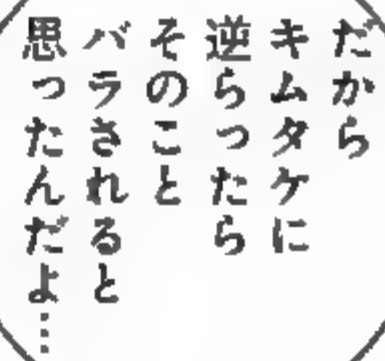 だから
キムタケに
逆らったら
そのこと
バラされると
思ったんだよ…